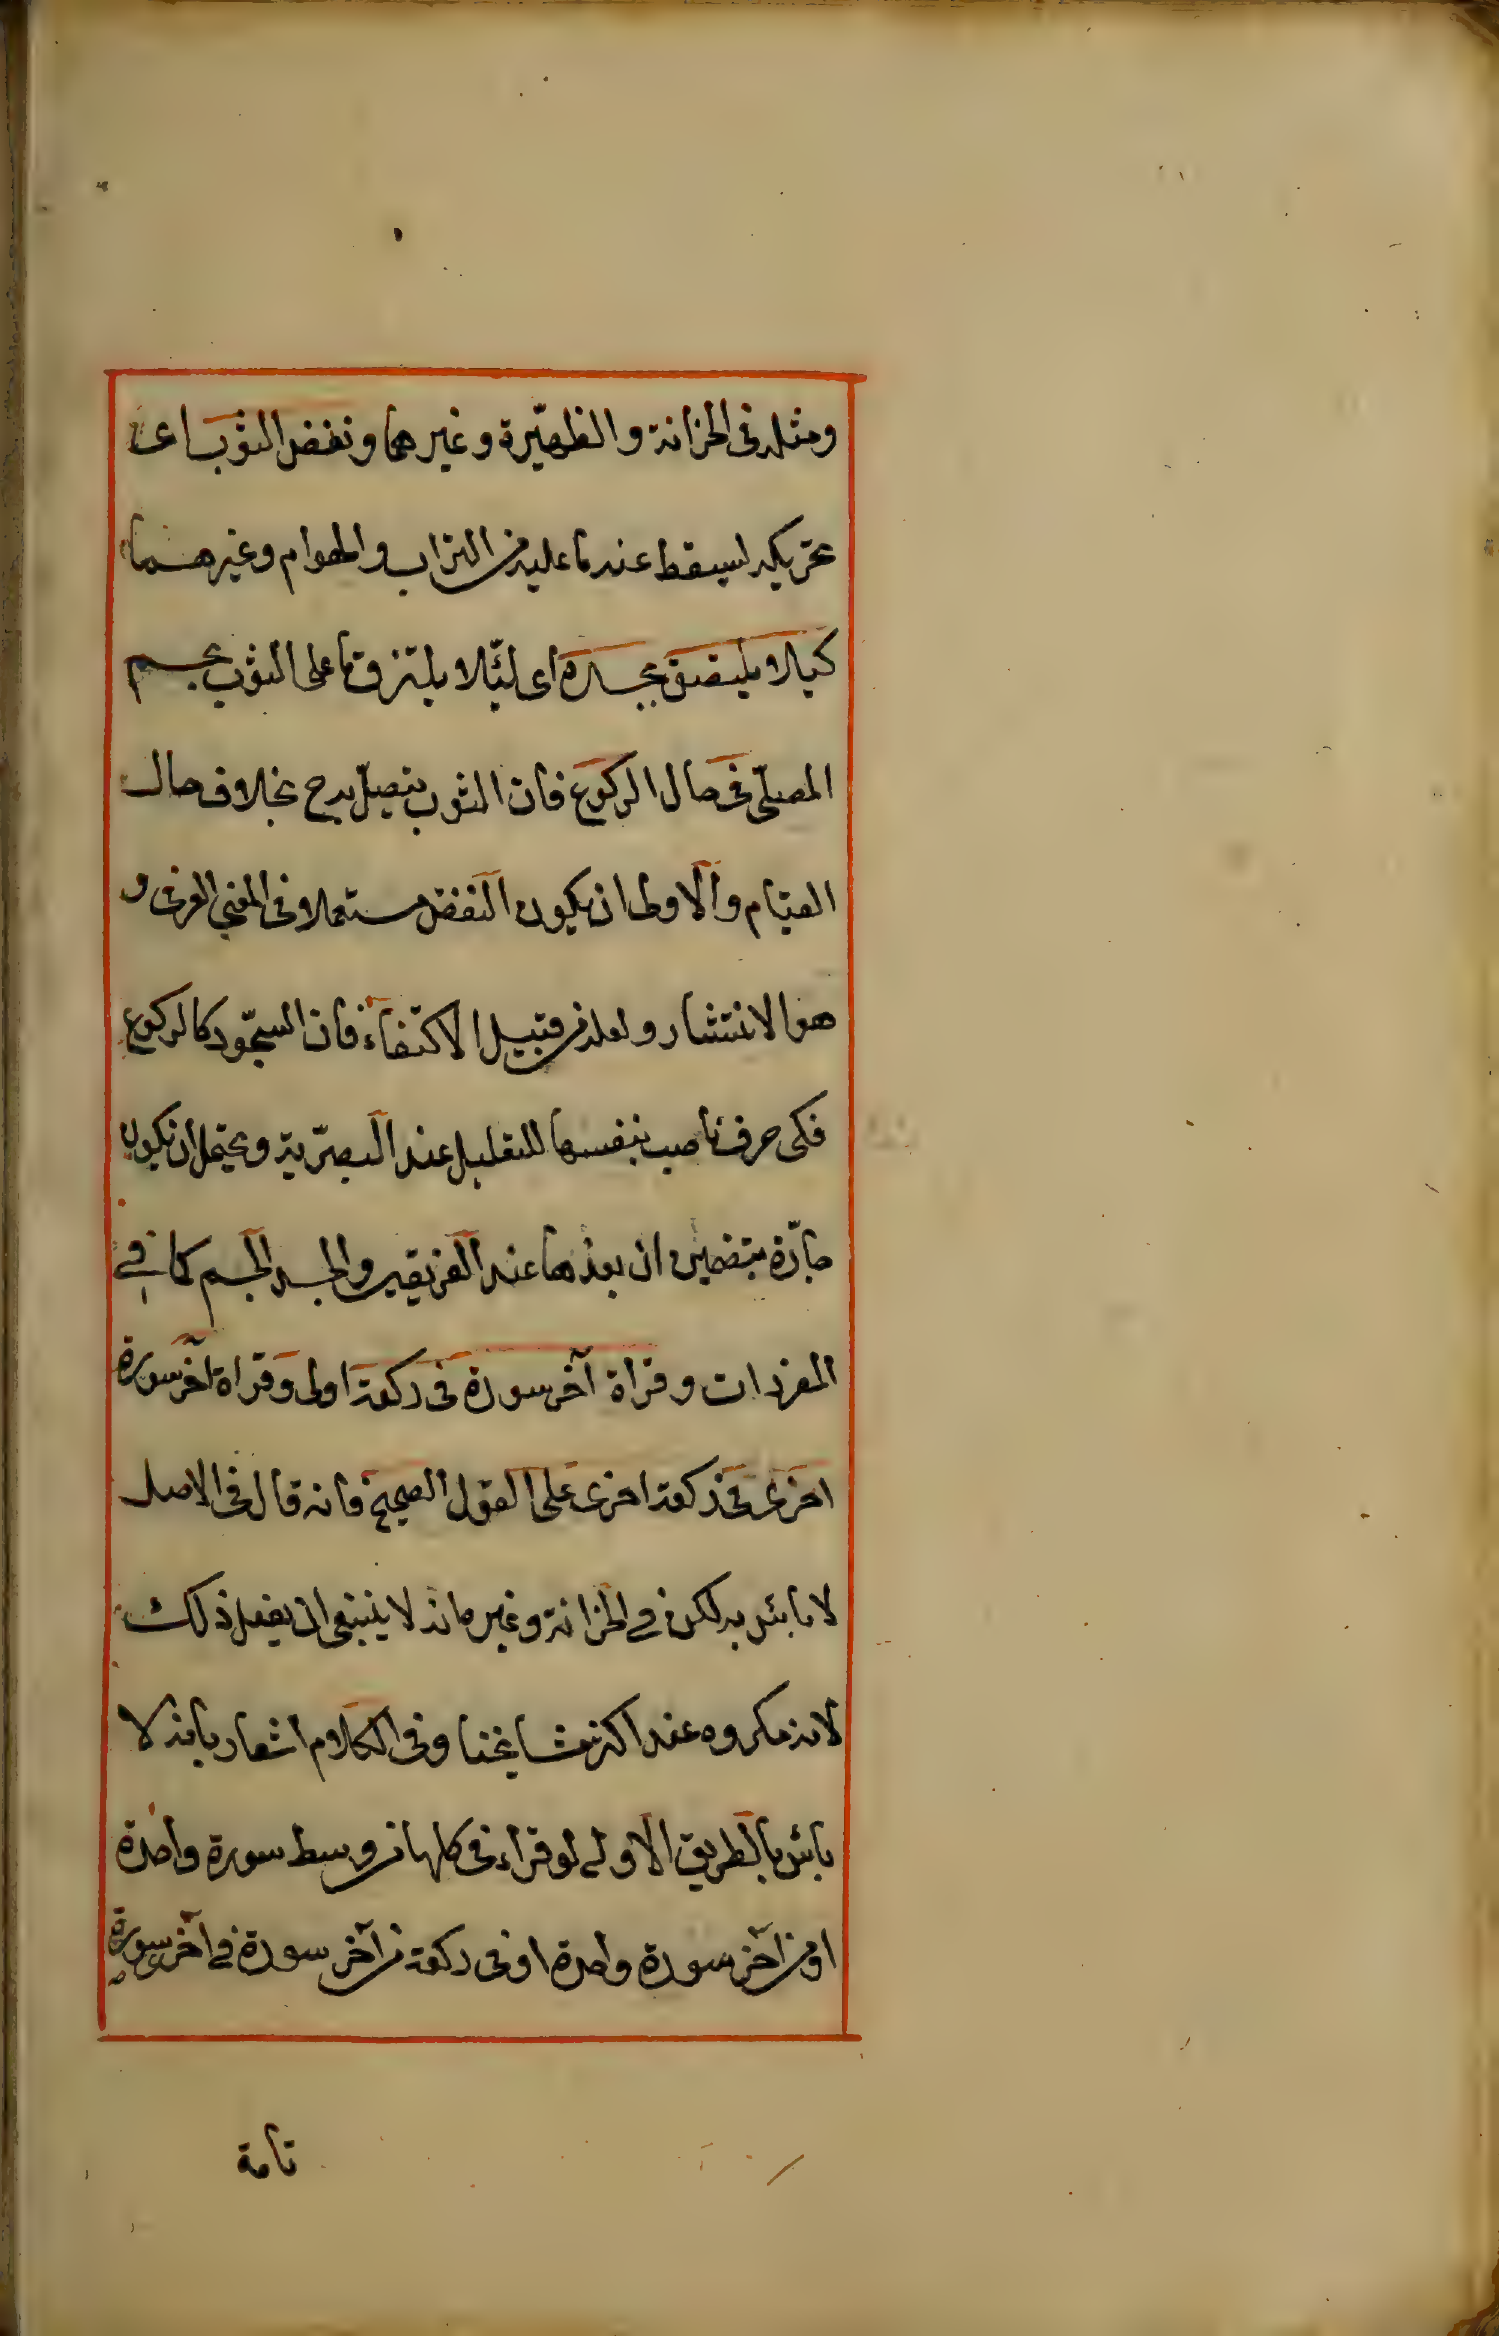 ومثله فى الخزانة والظهيّرة وغيرهما ونفض الثوب اى
تحريكه ليسقط عنه ما عليه من التراب والهوام وغيرهما
كيلا يلتصق بجسده اى لئّلا يلتزق ما على الثوب بجسم
المصلّى فى حال الركوع فان الثوب يتصل به ح بخلاف حال
القيام والاولى ان يكون النفض مستعملا فى المعنى العرفى و
هو الانتشار ولعله من قبيل الاكتفاء فان السجّود كالركوع
فكى حرف ناصب بنفسها للتعليل عند البصرّية ويحتمل ان يكون
جارّة بتضمين ان بعدها عند الفريقين والجسد الجسم كما فى
المفردات وقراة آخر سورة فى ركعة اولى وقراة آخر سورة
اخرى فى ركعة اخرى على القول الصحيح فانه قال فى الاصل
لا بائس به لكن فى الخزانة وغيره انه لا ينبغى ان يفعل ذلك
لانه مكروه عند اكثر مشايخنا وفى الكلام اشعار بانه لا
بائس بالطريق الاولى لو قراء فى كلها من وسط سورة واحدة
او من آخر سورة واحدة او فى ركعة من آخر سورة فى آخر سورة
تامة